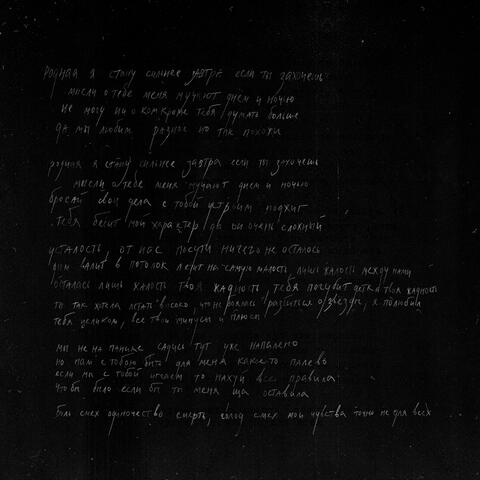 родная я стану сильнее завтра если ты захочешь
мысли о тебе меня мучают днем и ночью
не могу ни о ком кроме тебя думать больше
да мы любим разное но так похожи
родная я стану сильнее завтра если ты захочешь
мысли о тебе меня мучают днем и ночью
бросай свои дела с тобой устроим поджиг
тебя бесит мой характер да он очень сложный
усталость, от нас почти ничего не осталось
дым валит в потолок летит на самую малость лишь жалость между нами
осталась лишь жалость твоя жадность, тебя погубит детка твоя жадность
ты так хотела летать высоко что не боялась разбиться о звезды, я полюбил
тебя целиком, все твои минусы и плюсы
мы не на понике сядись тут уже напалено
но нам с тобою быть для меня както палево
если мы с тобой играем то нахуй все правила
что бы было если бы ты меня ща оставила
боль смех одиночество смерть, голод смех мои чувства точно не для всех